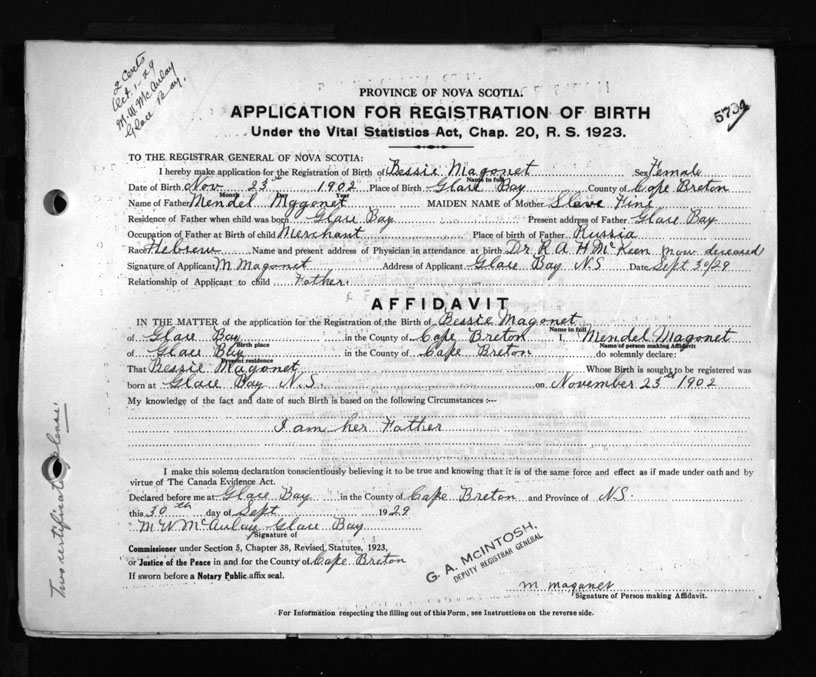 2 Certs
Oct. 1-29
M.W. McAulay
Glace Bay.
5709
PROVINCE OF NOVA SCOTIA.
APPLICATION FOR REGISTRATION OF BIRTH
Under the Vital Statistics Act, Chap. 20, R. S. 1923.
TO THE REGISTRAR GENERAL OF NOVA SCOTIA:
I hereby make application for the Registration of Birth of Bessie Magonet Sex Female
Name in full
Date of Birth Nov 23rd 1902 Place of Birth Glace Bay County of Cape Breton
Month Year
Name of Father Mendel Magonet MAIDEN NAME of Mother Slave Fine
Residence of Father when child was born Glace Bay Present address of Father Glace Bay
Occupation of Father at Birth of child Merchant Place of birth of Father Russia
Race Hebrew Name and present address of Physician in attendance at birth Dr R A H McKeen (now deceased)
Signature of Applicant M Magonet Address of Applicant Glace Bay N S Date Sept 30/29
Relationship of Applicant to child Father.
AFFIDAVIT
IN THE MATTER of the application for the Registration of the Birth of Bessie Magonet
Name in full
of Glace Bay in the County of Cape Breton I, Mendel Magonet
Birth place Name of person making Affidavit
of Glace Bay in the County of Cape Breton do solemnly declare:
Present residence
That Bessie Magonet Whose Birth is sought to be registered was
born at Glace Bay N.S. on November 23rd 1902
My knowledge of the fact and date of such Birth is based on the following Circumstances :—
I am her Father
I make this solemn declaration conscientiously believing it to be true and knowing that it is of the same force and effect as if made under oath and by
virtue of The Canada Evidence Act.
Declared before me at Glace Bay in the County of Cape Breton and Province of N.S.
this 30th day of Sept 1929
M W McAulay Glace Bay
Signature of
Commissioner under Section 5, Chapter 38, Revised Statutes, 1923,
or Justice of the Peace in and for the County of Cape Breton
If sworn before a Notary Public affix seal.
G. A. McINTOSH,
DEPUTY REGISTRAR GENERAL
M Magonet
Signature of Person making Affidavit.
For Information respecting the filling out of this Form, see Instructions on the reverse side.
Two certificates please.